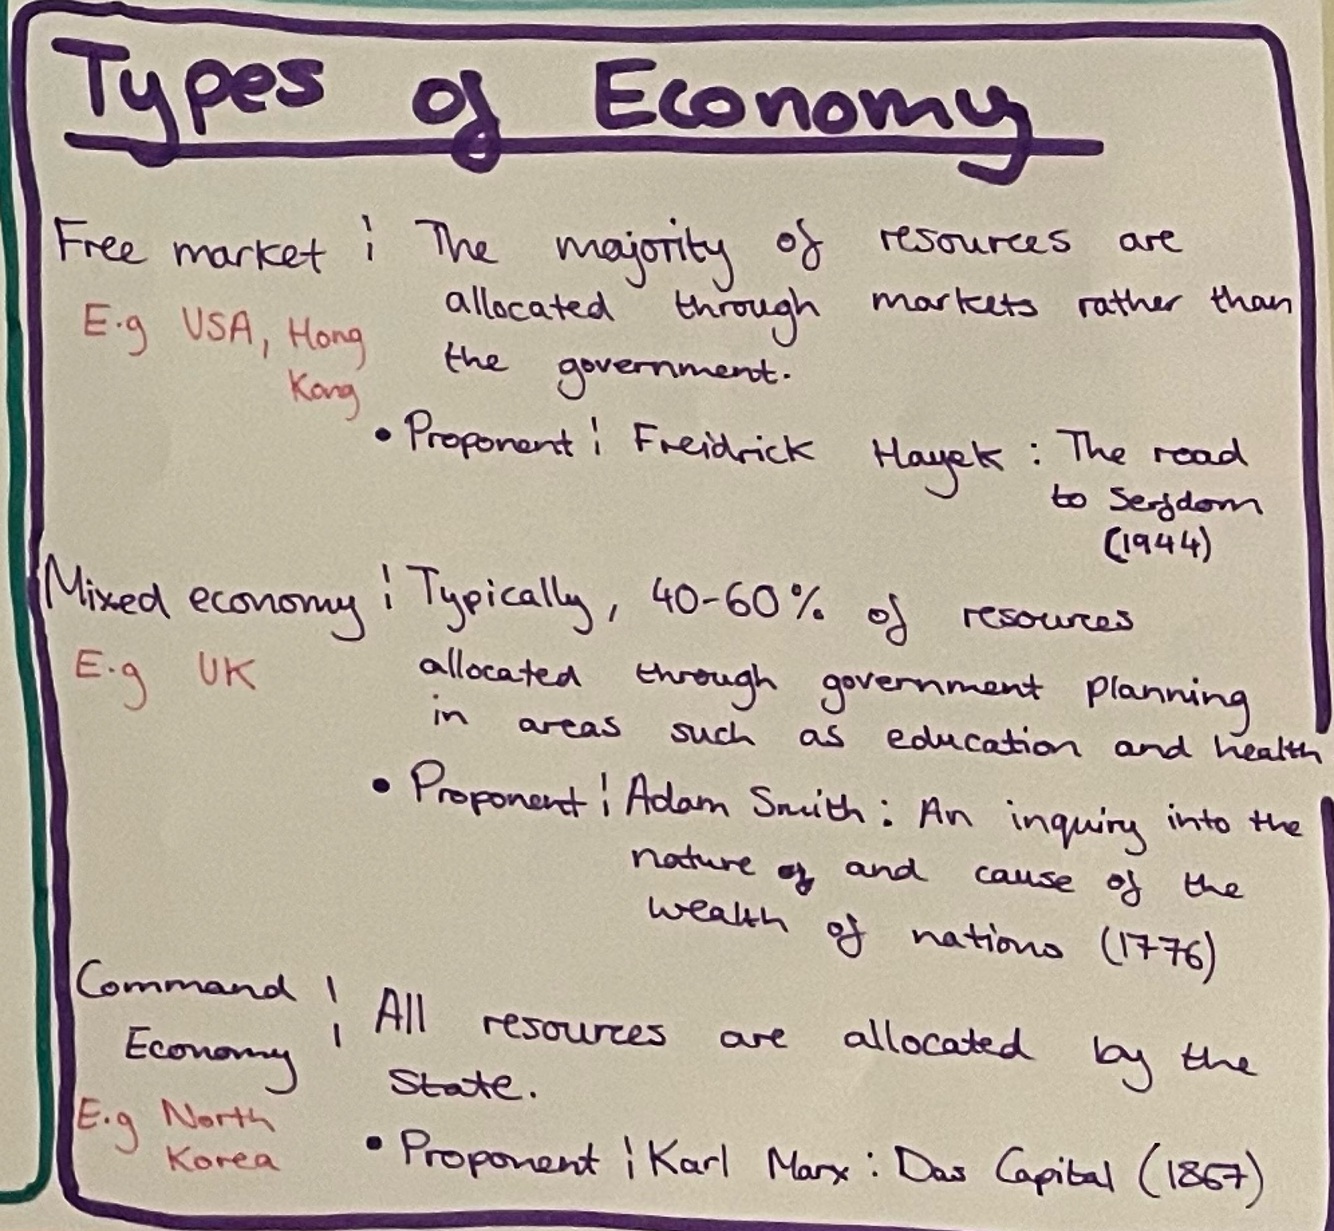 Types of Economy
Free market ¦ The majority of resources are
E.g USA, Hong allocated through markets rather than
Kong the government.
• Proponent ¦ Freidrick Hayek : The road
to Serfdom
(1944)
Mixed economy ¦ Typically, 40-60% of resources
E.g UK allocated through government planning
in areas such as education and health
• Proponent ¦ Adam Smith : An inquiry into the
nature of and cause of the
wealth of nations (1776)
Command ¦ All resources are allocated by the
Economy ¦ State.
E.g North
Korea • Proponent ¦ Karl Marx : Das Capital (1867)